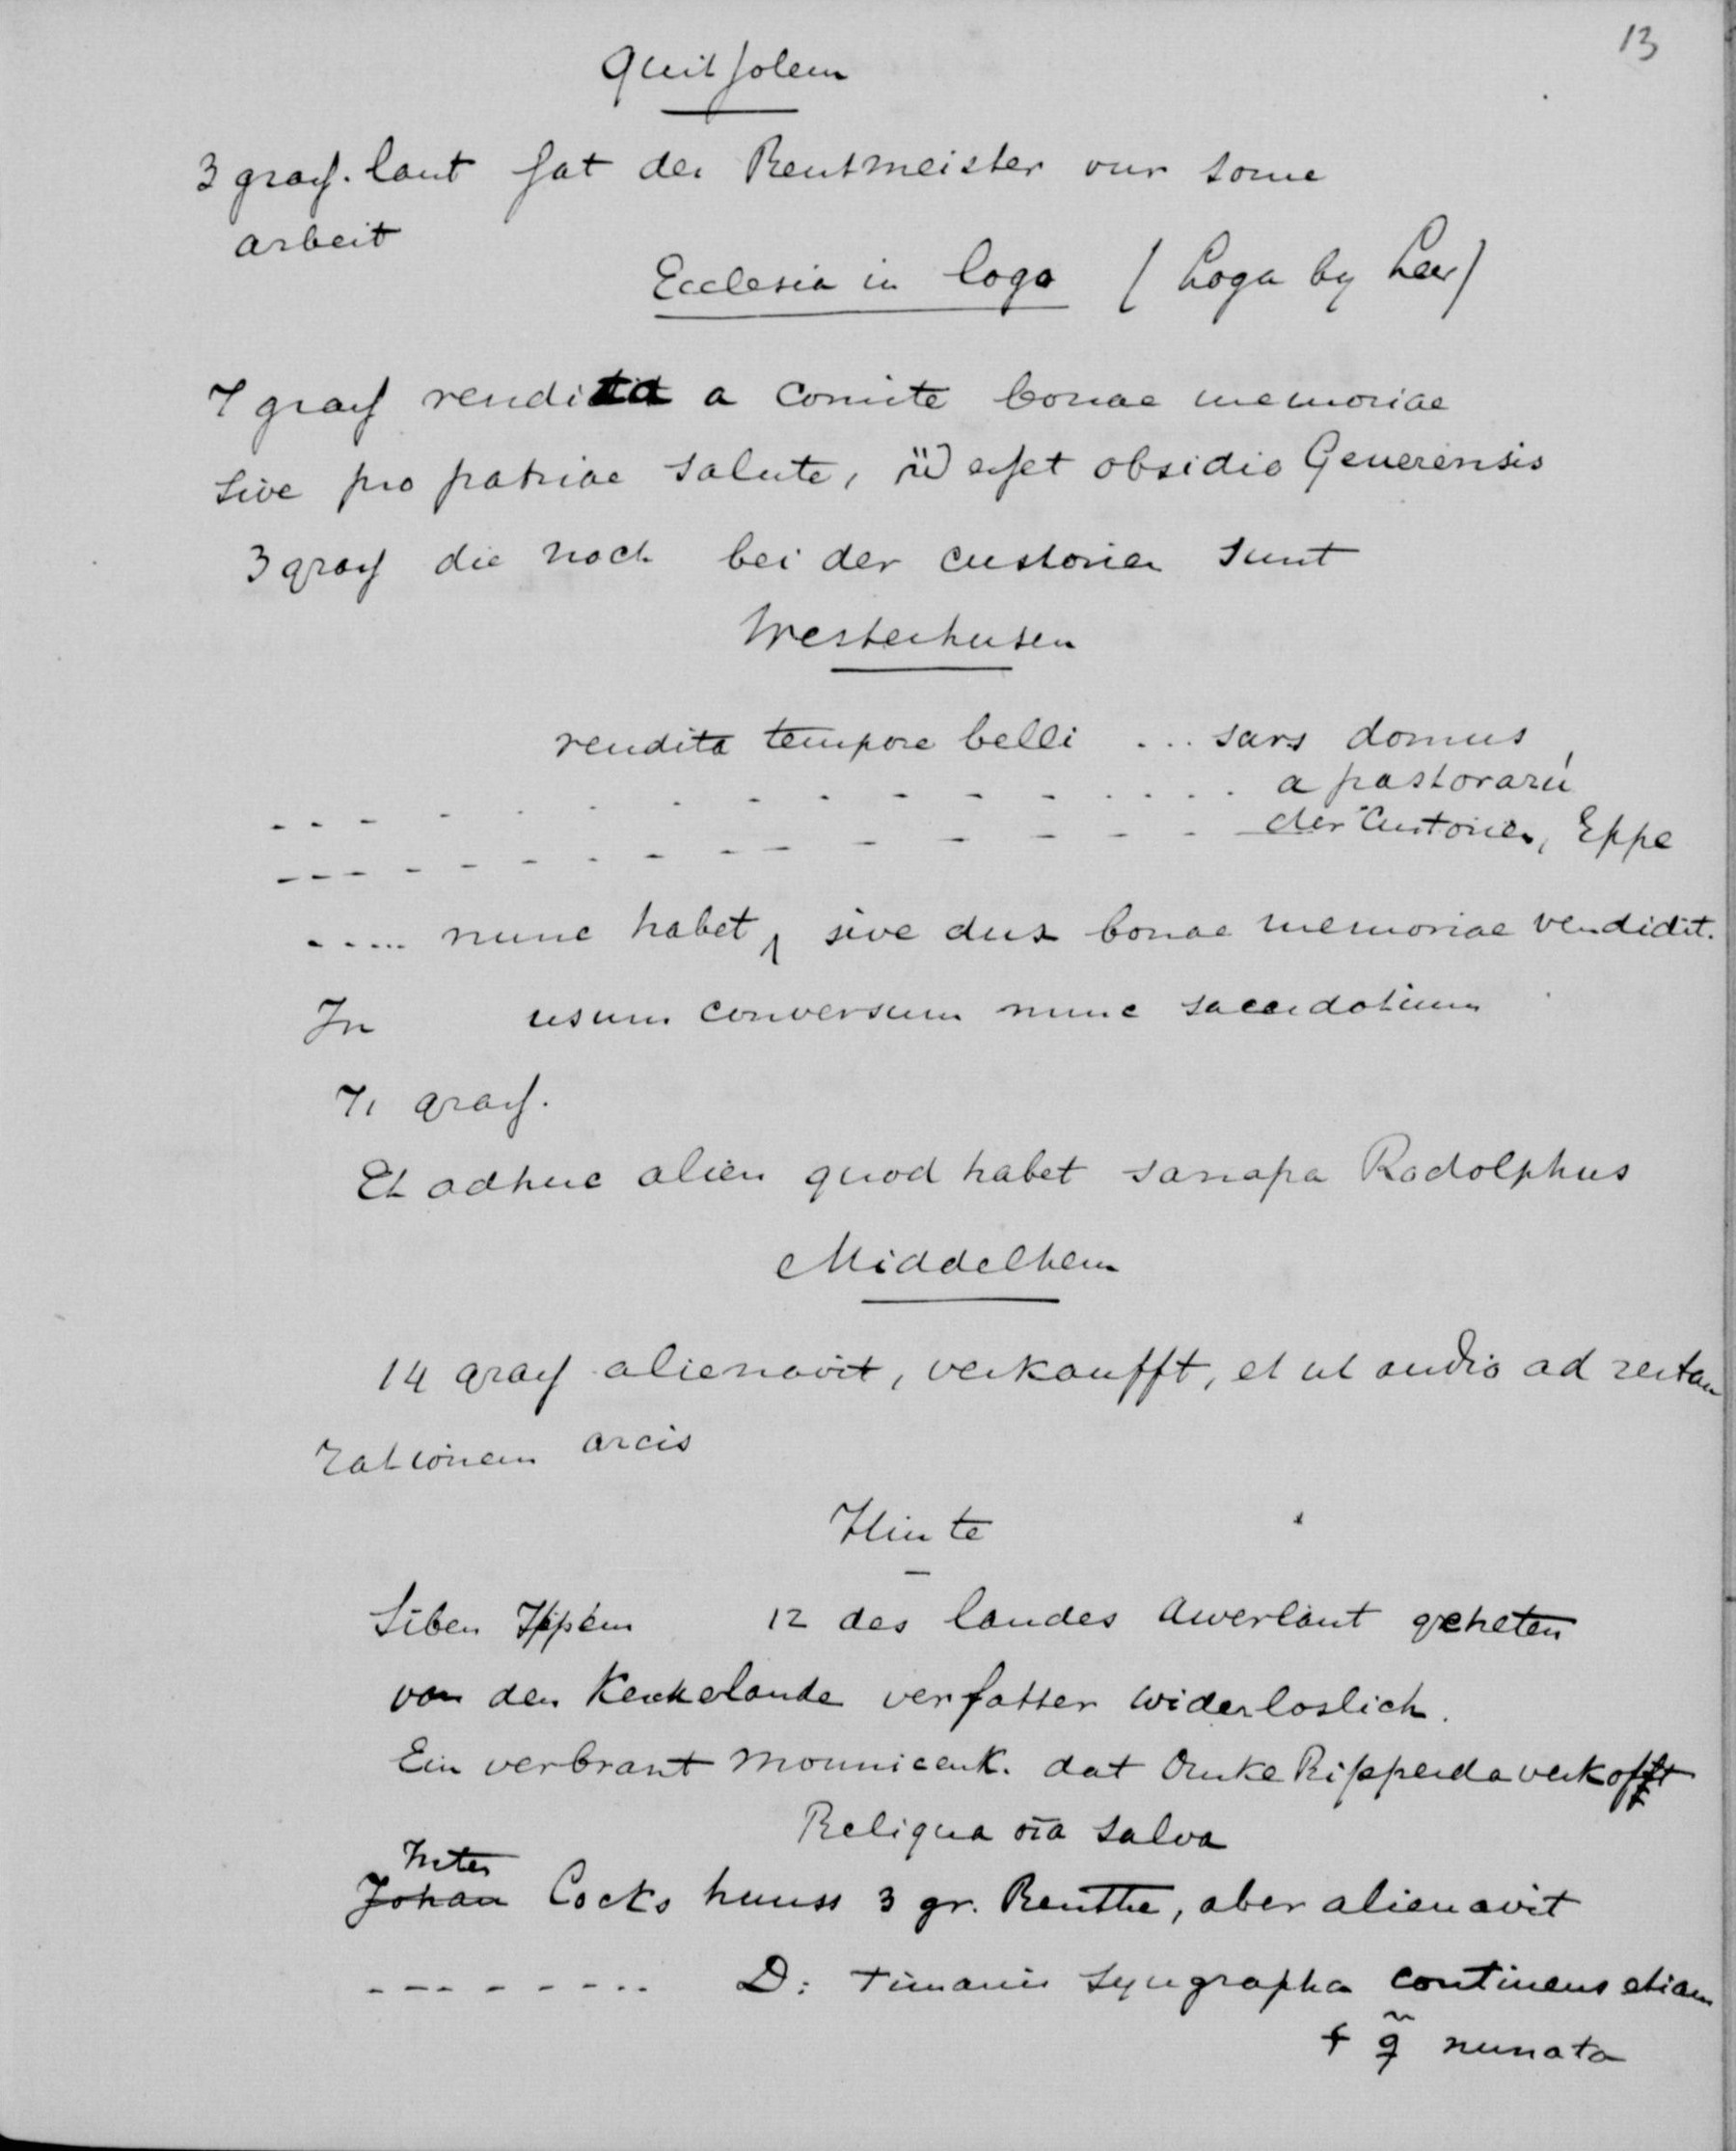 13
Quitsolem
3 graſ. lant hat der Rentmeister vur some
arbeit
Ecclesia in loga (Loga by Leer)
7 graſ vendita a comite bonae memoriae
sive pro patriae salute, eſſet obsidio Generensis
3 graſ die noch bei der custorien sunt
Westerhusen
vendita tempore belli ... sars domus
--- - - - - - - - - - - . . . . a pastorarii
--- - - - - - - - - - - - - der Custorien, Eppe
..... nunc habet, sive dux bonae memoriae vendidit.
In usum conversum nunc sacerdotium
7, graſ.
Et adhuc alien quod habet sanapa Rodolphus
Middelhem
14 graſ alienavit, verkaufft, et ut audio ad restau
rationem arcis
Hinte
Siben Ippem 12 des landes Awerlant geheten
van den Kerkelande versatter widerloslich.
Ein verbrant mounicenk. dat Omke Ripperda verkofft
Reliqua oia salva
Inter
Johan Cocks huuss 3 gr. Renthe, aber alienavit
--- - - - - .. D: Timanni syngrapha continens etiam
+ q̃ numata